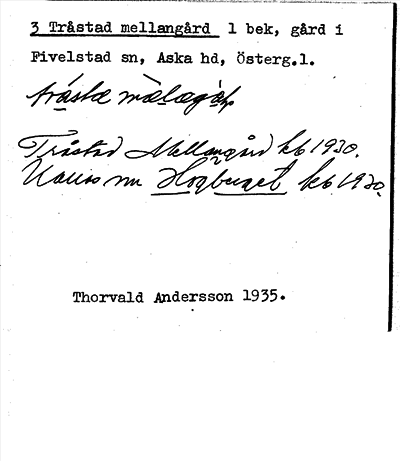 3 Tråstad mellangård 1 bek, gård i
Fivelstad sn, Aska hd, Österg.l.
Tråstad Mellangård kb 1930.
Kallas nu Högberget kb 1930.
Thorvald Andersson 1935.